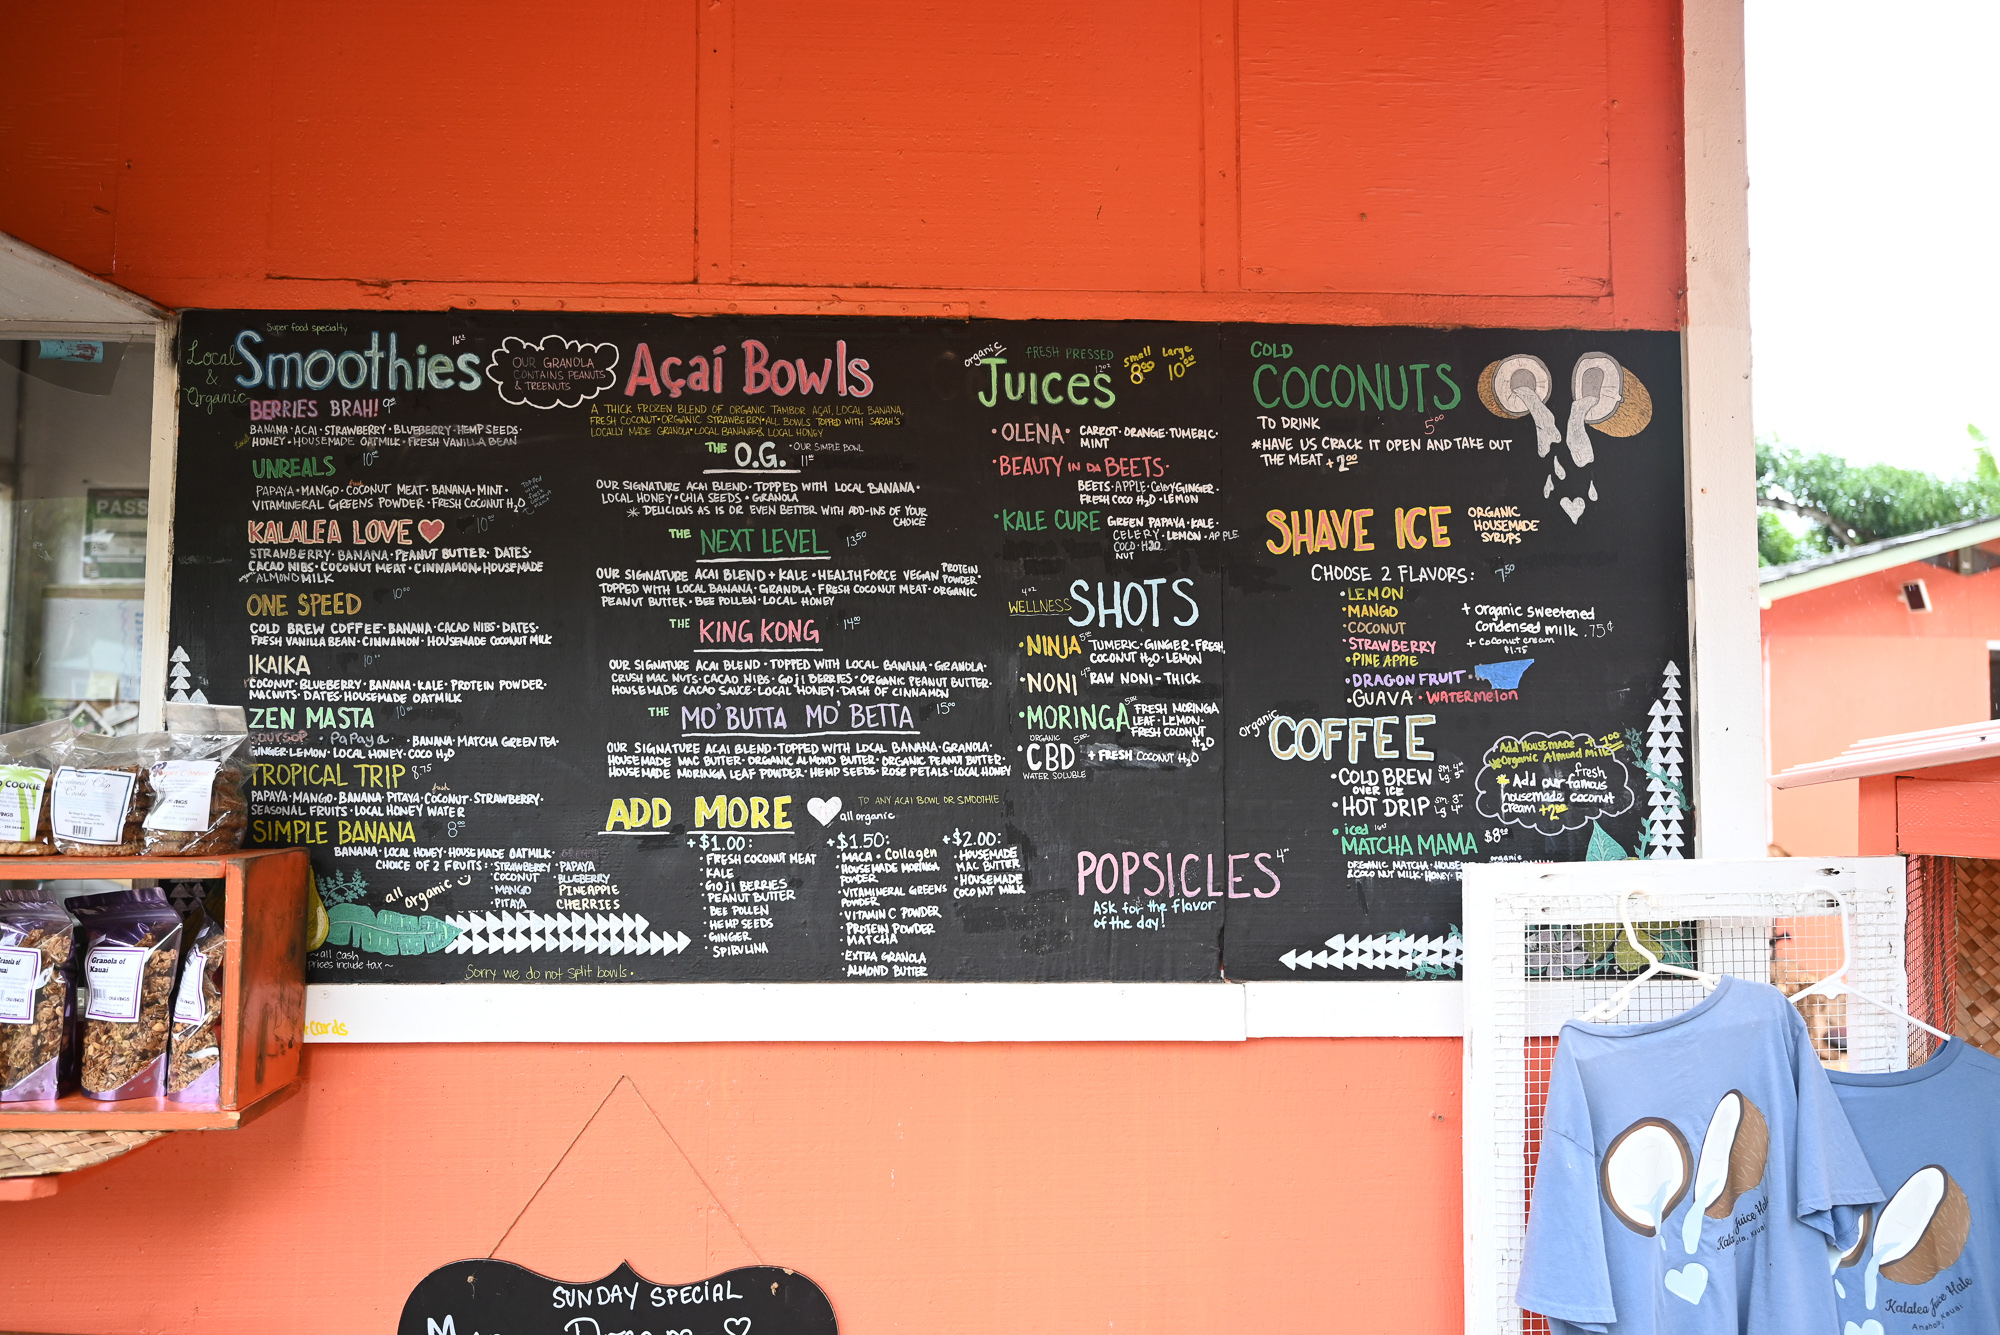 Super food specialty
Local
&
Organic
Smoothies 16oz
OUR GRANOLA
CONTAINS PEANUTS
& TREENUTS
BERRIES BRAH!
BANANA • ACAI • STRAWBERRY • BLUEBERRY • HEMP SEEDS •
HONEY • HOUSEMADE OATMILK • FRESH VANILLA BEAN
UNREALS 10.00
PAPAYA • MANGO • COCONUT MEAT • BANANA • MINT •
VITAMINERAL GREENS POWDER • FRESH COCONUT H2O
KALALEA LOVE 10.00
STRAWBERRY • BANANA • PEANUT BUTTER • DATES •
CACAO NIBS • COCONUT MEAT • CINNAMON • HOUSEMADE
ALMOND MILK
ONE SPEED 10.00
COLD BREW COFFEE • BANANA • CACAO NIBS • DATES •
FRESH VANILLA BEAN • CINNAMON • HOUSEMADE COCONUT MILK
IKAIKA 10.00
COCONUT • BLUEBERRY • BANANA • KALE • PROTEIN POWDER •
MACNUTS • DATES • HOUSEMADE OATMILK
ZEN MASTA 10.00
SOURSOP • PaPaya • BANANA • MATCHA GREEN TEA •
GINGER • LEMON • LOCAL HONEY • COCO H2O
TROPICAL TRIP 8.75
fresh
PAPAYA • MANGO • BANANA • PITAYA • COCONUT • STRAWBERRY •
SEASONAL FRUITS • LOCAL HONEY WATER
SIMPLE BANANA 8.00
BANANA • LOCAL HONEY • HOUSEMADE OATMILK •
CHOICE OF 2 FRUITS: • STRAWBERRY • PAPAYA
• COCONUT • BLUEBERRY
• MANGO PINEAPPLE
• PITAYA CHERRIES
all organic
~ all cash
prices include tax ~
Sorry we do not split bowls.
Açaí Bowls
A THICK FROZEN BLEND OF ORGANIC TAMBOR AÇAÍ, LOCAL BANANA,
FRESH COCONUT • ORGANIC STRAWBERRY • ALL BOWLS TOPPED WITH SARAH'S
LOCALLY MADE GRANOLA • LOCAL BANANAS & LOCAL HONEY
THE O.G. • OUR SIMPLE BOWL
OUR SIGNATURE ACAI BLEND • TOPPED WITH LOCAL BANANA •
LOCAL HONEY • CHIA SEEDS • GRANOLA
* DELICIOUS AS IS OR EVEN BETTER WITH ADD-INS OF YOUR
CHOICE
THE NEXT LEVEL 13.50
OUR SIGNATURE ACAI BLEND + KALE • HEALTHFORCE VEGAN PROTEIN POWDER •
TOPPED WITH LOCAL BANANA • GRANOLA • FRESH COCONUT MEAT • ORGANIC
PEANUT BUTTER • BEE POLLEN • LOCAL HONEY
THE KING KONG 14.00
OUR SIGNATURE ACAI BLEND • TOPPED WITH LOCAL BANANA • GRANOLA •
CRUSH MAC NUTS • CACAO NIBS • GOJI BERRIES • ORGANIC PEANUT BUTTER •
HOUSEMADE CACAO SAUCE • LOCAL HONEY • DASH OF CINNAMON
THE MO'BUTTA MO'BETTA 15.00
OUR SIGNATURE ACAI BLEND • TOPPED WITH LOCAL BANANA • GRANOLA •
HOUSEMADE MAC BUTTER • ORGANIC ALMOND BUTTER • ORGANIC PEANUT BUTTER •
HOUSEMADE MORINGA LEAF POWDER • HEMP SEEDS • ROSE PETALS • LOCAL HONEY
ADD MORE
TO ANY ACAI BOWL OR SMOOTHIE
all organic
+$1.00:
• FRESH COCONUT MEAT
• KALE
• GOJI BERRIES
• PEANUT BUTTER
• BEE POLLEN
• HEMP SEEDS
• GINGER
• SPIRULINA
+$1.50:
• MACA • Collagen
• HOUSEMADE MORINGA
POWDER
• VITAMINERAL GREENS
POWDER
• VITAMIN C POWDER
• PROTEIN POWDER
• MATCHA
• EXTRA GRANOLA
• ALMOND BUTTER
+$2.00:
• HOUSEMADE
MAC BUTTER
• HOUSEMADE
COCONUT MILK
organic
FRESH PRESSED
Juices 12oz
small Large
8.00 10.00
• OLENA • CARROT • ORANGE • TUMERIC •
MINT
• BEAUTY IN DA BEETS •
BEETS • APPLE • Celery GINGER •
FRESH COCO H2O • LEMON
• KALE CURE GREEN PAPAYA • KALE •
CELERY • LEMON • APPLE
COCO • H2O
NUT
4oz
WELLNESS SHOTS
• NINJA TUMERIC • GINGER • FRESH
COCONUT H2O • LEMON
• NONI RAW NONI - THICK
• MORINGA FRESH MORINGA
LEAF • LEMON •
FRESH COCONUT
H2O
ORGANIC
• CBD + FRESH COCONUT H2O
WATER SOLUBLE
POPSICLES
Ask for the flavor
of the day!
COLD
COCONUTS
TO DRINK 5.00
*HAVE US CRACK IT OPEN AND TAKE OUT
THE MEAT + 2.00
SHAVE ICE
ORGANIC
HOUSEMADE
SYRUPS
CHOOSE 2 FLAVORS: 7.50
• LEMON
• MANGO
• COCONUT
• STRAWBERRY
• PINEAPPLE
• DRAGON FRUIT
• GUAVA • WATERMELON
+ Organic sweetened
Condensed milk .75¢
+ coconut cream
$1.75
organic
COFFEE
• COLD BREW
OVER ICE
• HOT DRIP
• iced 16oz
MATCHA MAMA $8.00
ORGANIC MATCHA • HOUSEM
& COCONUT MILK • HONEY •
Add Housemade
Organic Almond Milk
* Add our famous fresh
housemade coconut
cream +2.00
PASS
COOKIE
Granola of
Kauai
cards
SUNDAY SPECIAL
Kalalea Juice Hale